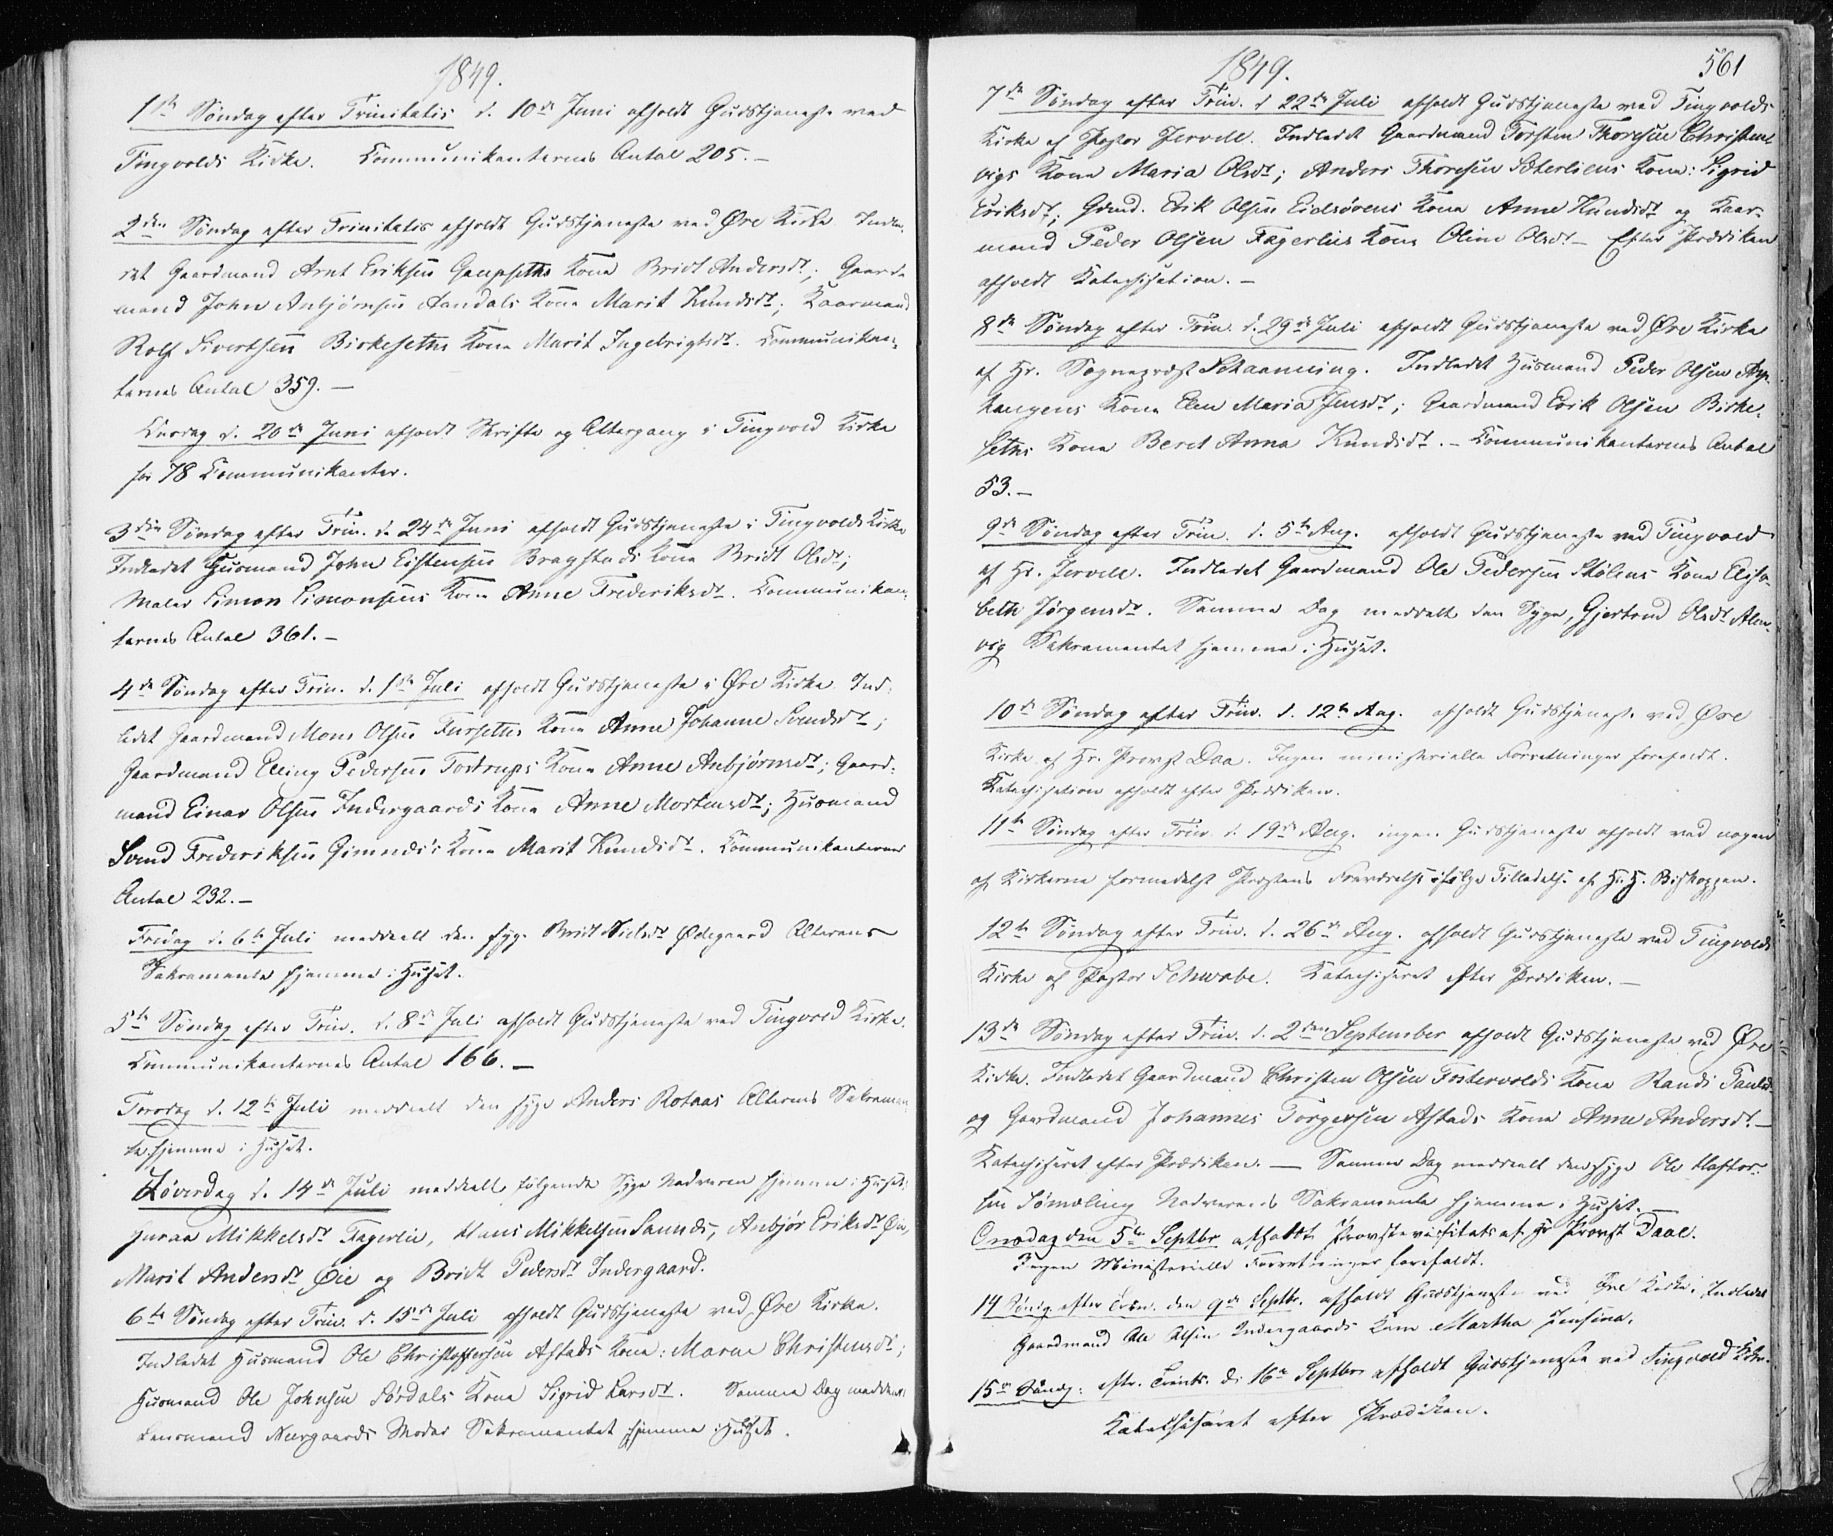 1849.
1ste Søndag efter Trinitatis d. 10de Juni afholdt Gudstjeneste ved
Tingvolds Kirke. Communikanternes Antal 205.—
2den Søndag efter Trinitatis afholdt Gudstjeneste ved Øre Kirke. Indle-
det Gaardmand Arnt Eriksens Gaupseths Kone Bridt Andersdt; Gaard-
mand John Anbjørnsens Aandals Kone Marit Knudsdt; Kaarmand
Rolf Sivertsen Birkeseths Kone Marit Ingebrigtsdt. Communikan-
ternes Antal 359.—
Onsdag d. 20de Juni afholdt Skrifte og Altergang i Tingvold Kirke
for 78 Communikanter.
3die Søndag efter Trin. d. 24de Juni afholdt Gudstjeneste i Tingvolds Kirke
Indledet Husmand John Eistensens Bragstads Kone Bridt Olsdt;
Maler Simon Simonsens Kone Anne Frederiksdt. Communikan-
ternes Antal 361.—
4de Søndag efter Trin. d. 1ste Juli afholdt Gudstjeneste i Øre Kirke. Ind-
ledet Gaardmand Mons Olsens Furseths Kone Anne Johanne Svendsdt;
Gaardmand Elling Pedersens Tostrups Kone Anne Anbjørnsdt; Gaard-
mand Einar Olsens Indergaards Kone Anne Mortensdt; Husmand
Svend Frederiksens Gimnes's Kone Marit Knudsdt. Communikanternes
Antal 232.—
Fredag d. 6te Juli meddeelt den syge Bridt Nielsdt Ødegaard Alterens
Sakramente hjemme i Huset.
5te Søndag efter Trin. d. 8de Juli afholdt Gudstjeneste ved Tingvold Kirke.
Communikanternes Antal 166.—
Torsdag d. 12te Juli meddeelt den syge Anders Rotaas Alterens Sakramen-
te hjemme i Huset.
Løverdag d. 14de Juli meddeelt følgende Syge Nadveren hjemme i Huset:
Guraa Mikkelsdt Fagerlie, Hans Mikkelsen Sandnes, Anbjør Eriksdt Øie,
Marit Andersdt Øie og Bridt Pedersdt Indergaard.
6te Søndag efter Trin. d. 15de Juli afholdt Gudstjeneste ved Øre Kirke.
Indledet Husmand Ole Christoffersen Astads Kone: Maren Christensdt;
Husmand Ole Johnsen Sørdals Kone Sigrid Larsdt. Samme Dag meddeelt
Lensmand Neergaards Moder Sakramentet hjemme i Huset.
1849.
561
7de Søndag efter Trin. d. 22de Juli afholdt Gudstjeneste ved Tingvolds
Kirke af Pastor Jervell. Indledet Gaardmand Torsten Thoresen Christens-
vigs Kone Maria Olsdt; Anders Thoresen Sæterliens Kone: Sigrid
Eriksdt; Grmd. Erik Olsen Eidsørens Kone Anne Knudsdt og Kaar-
mand Peder Olsen Fagerlies Kone Oline Olsdt.— Efter Prædiken
afholdt Katechisation.—
8de Søndag efter Trin. d. 29de Juli afholdt Gudstjeneste ved Øre Kirke
af Hr. Sognepræst Schaanning. Indledet Husmand Peder Olsen Asp-
haugens Kone Elen Maria Jensdt; Gaardmand Erik Olsen Birke-
seths Kone Beret Anna Knudsdt.— Communikanternes Antal
53.—
9de Søndag efter Trin. d. 5te Aug. afholdt Gudstjeneste ved Tingvold
af Hr. Jervell. Indledet Gaardmand Ole Pedersen Stølens Kone Elisa-
beth Jørgensdt. Samme Dag meddelt den Syge, Gjertrud Olsdt Alm-
vig Sakramentet hjemme i Huset.
10de Søndag efter Trin. d. 12te Aug. afholdt Gudstjeneste ved Øre
Kirke af Hr. Provst Daa. Ingen ministerielle Forretninger forefaldt.
Katechisation afholdt efter Prædiken.
11te Søndag efter Trin. d. 19de Aug. ingen Gudstjeneste afholdt ved nogen
af Kirkerne formedelst Præstens Fraværelse ifølge Tilladelse af Hr. H. Biskoppen.
12te Søndag efter Trin. d. 26de Aug. afholdt Gudstjeneste ved Tingvolds
Kirke af Pastor Schwabe. Katechiseret efter Prædiken.—
13de Søndag efter Trin. d. 2den September afholdt Gudstjeneste ved Øre
Kirke. Indledet Gaardmand Christen Olsen Fostervolds Kone Randi Paulsd.
og Gaardmand Johannes Torgersen Astads Kone Anne Andersdt.—
Katechiseret efter Prædiken.— Samme Dag meddeelt den syge Ole Haftor-
sen Nadverens Sakramente hjemme i Huset.—
Onsdag den 5te Septbr afholdt Provstevisitats af Hr Provst Daae.
Ingen Ministerielle Forretninger forefaldt.
14 Søndg. efter Trin. den 9de Septbr. afholdt Gudstjeneste ved Øre Kirke; Indledet
Gaardmand Ole Olsen Indergaards Kone Martha Jensina.
15de Søndg: eftr. Trinit. d: 16de Septbr afholdt Gudstjeneste ved Tingvold Kirke.
Katechiseret efter Prædiken.